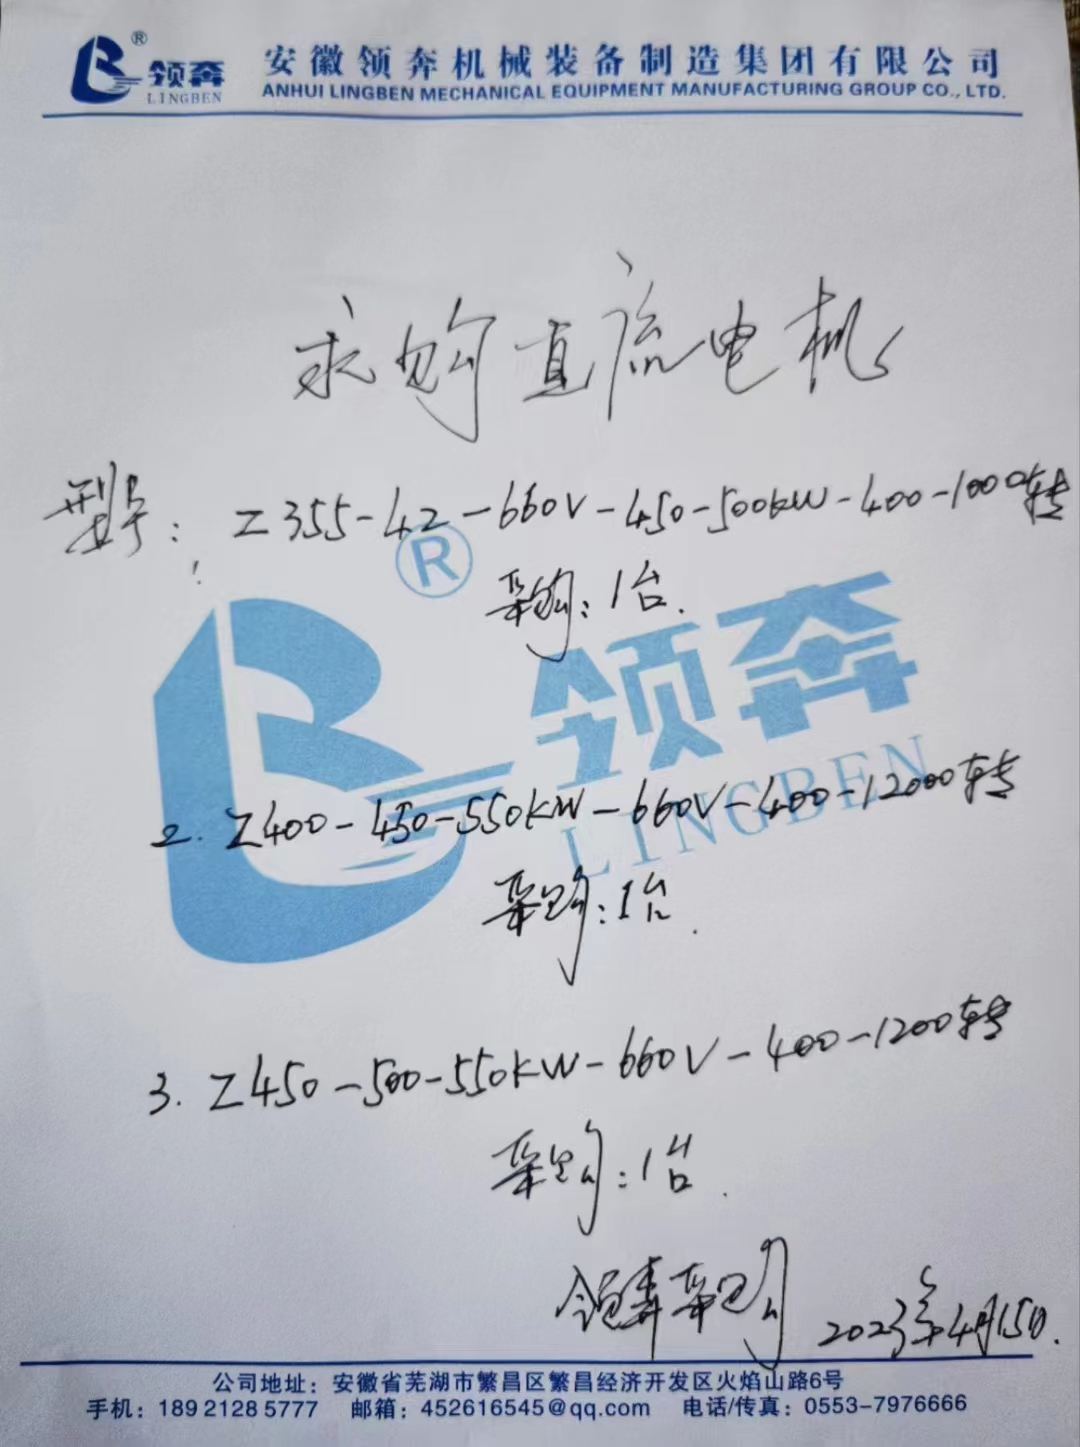 ® 领奔 安徽领奔机械装备制造集团有限公司
LINGBEN ANHUI LINGBEN MECHANICAL EQUIPMENT MANUFACTURING GROUP CO., LTD.
求购直流电机
型号: Z355-42-660V-450-500kW-400-1000转
®
采购: 1台.
领奔
LINGBEN
2. Z400-450-550kW-660V-400-12000转
采购: 1台.
3. Z450-500-550kW-660V-400-1200转
采购: 1台.
领奔采购 2023年4月15日.
公司地址: 安徽省芜湖市繁昌区繁昌经济开发区火焰山路6号
手机: 189 2128 5777 邮箱: 452616545@qq.com 电话/传真: 0553-7976666